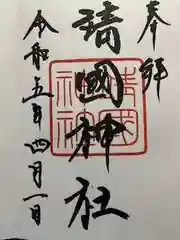 奉拝
靖國神社
靖國
神社
令和五年四月一日